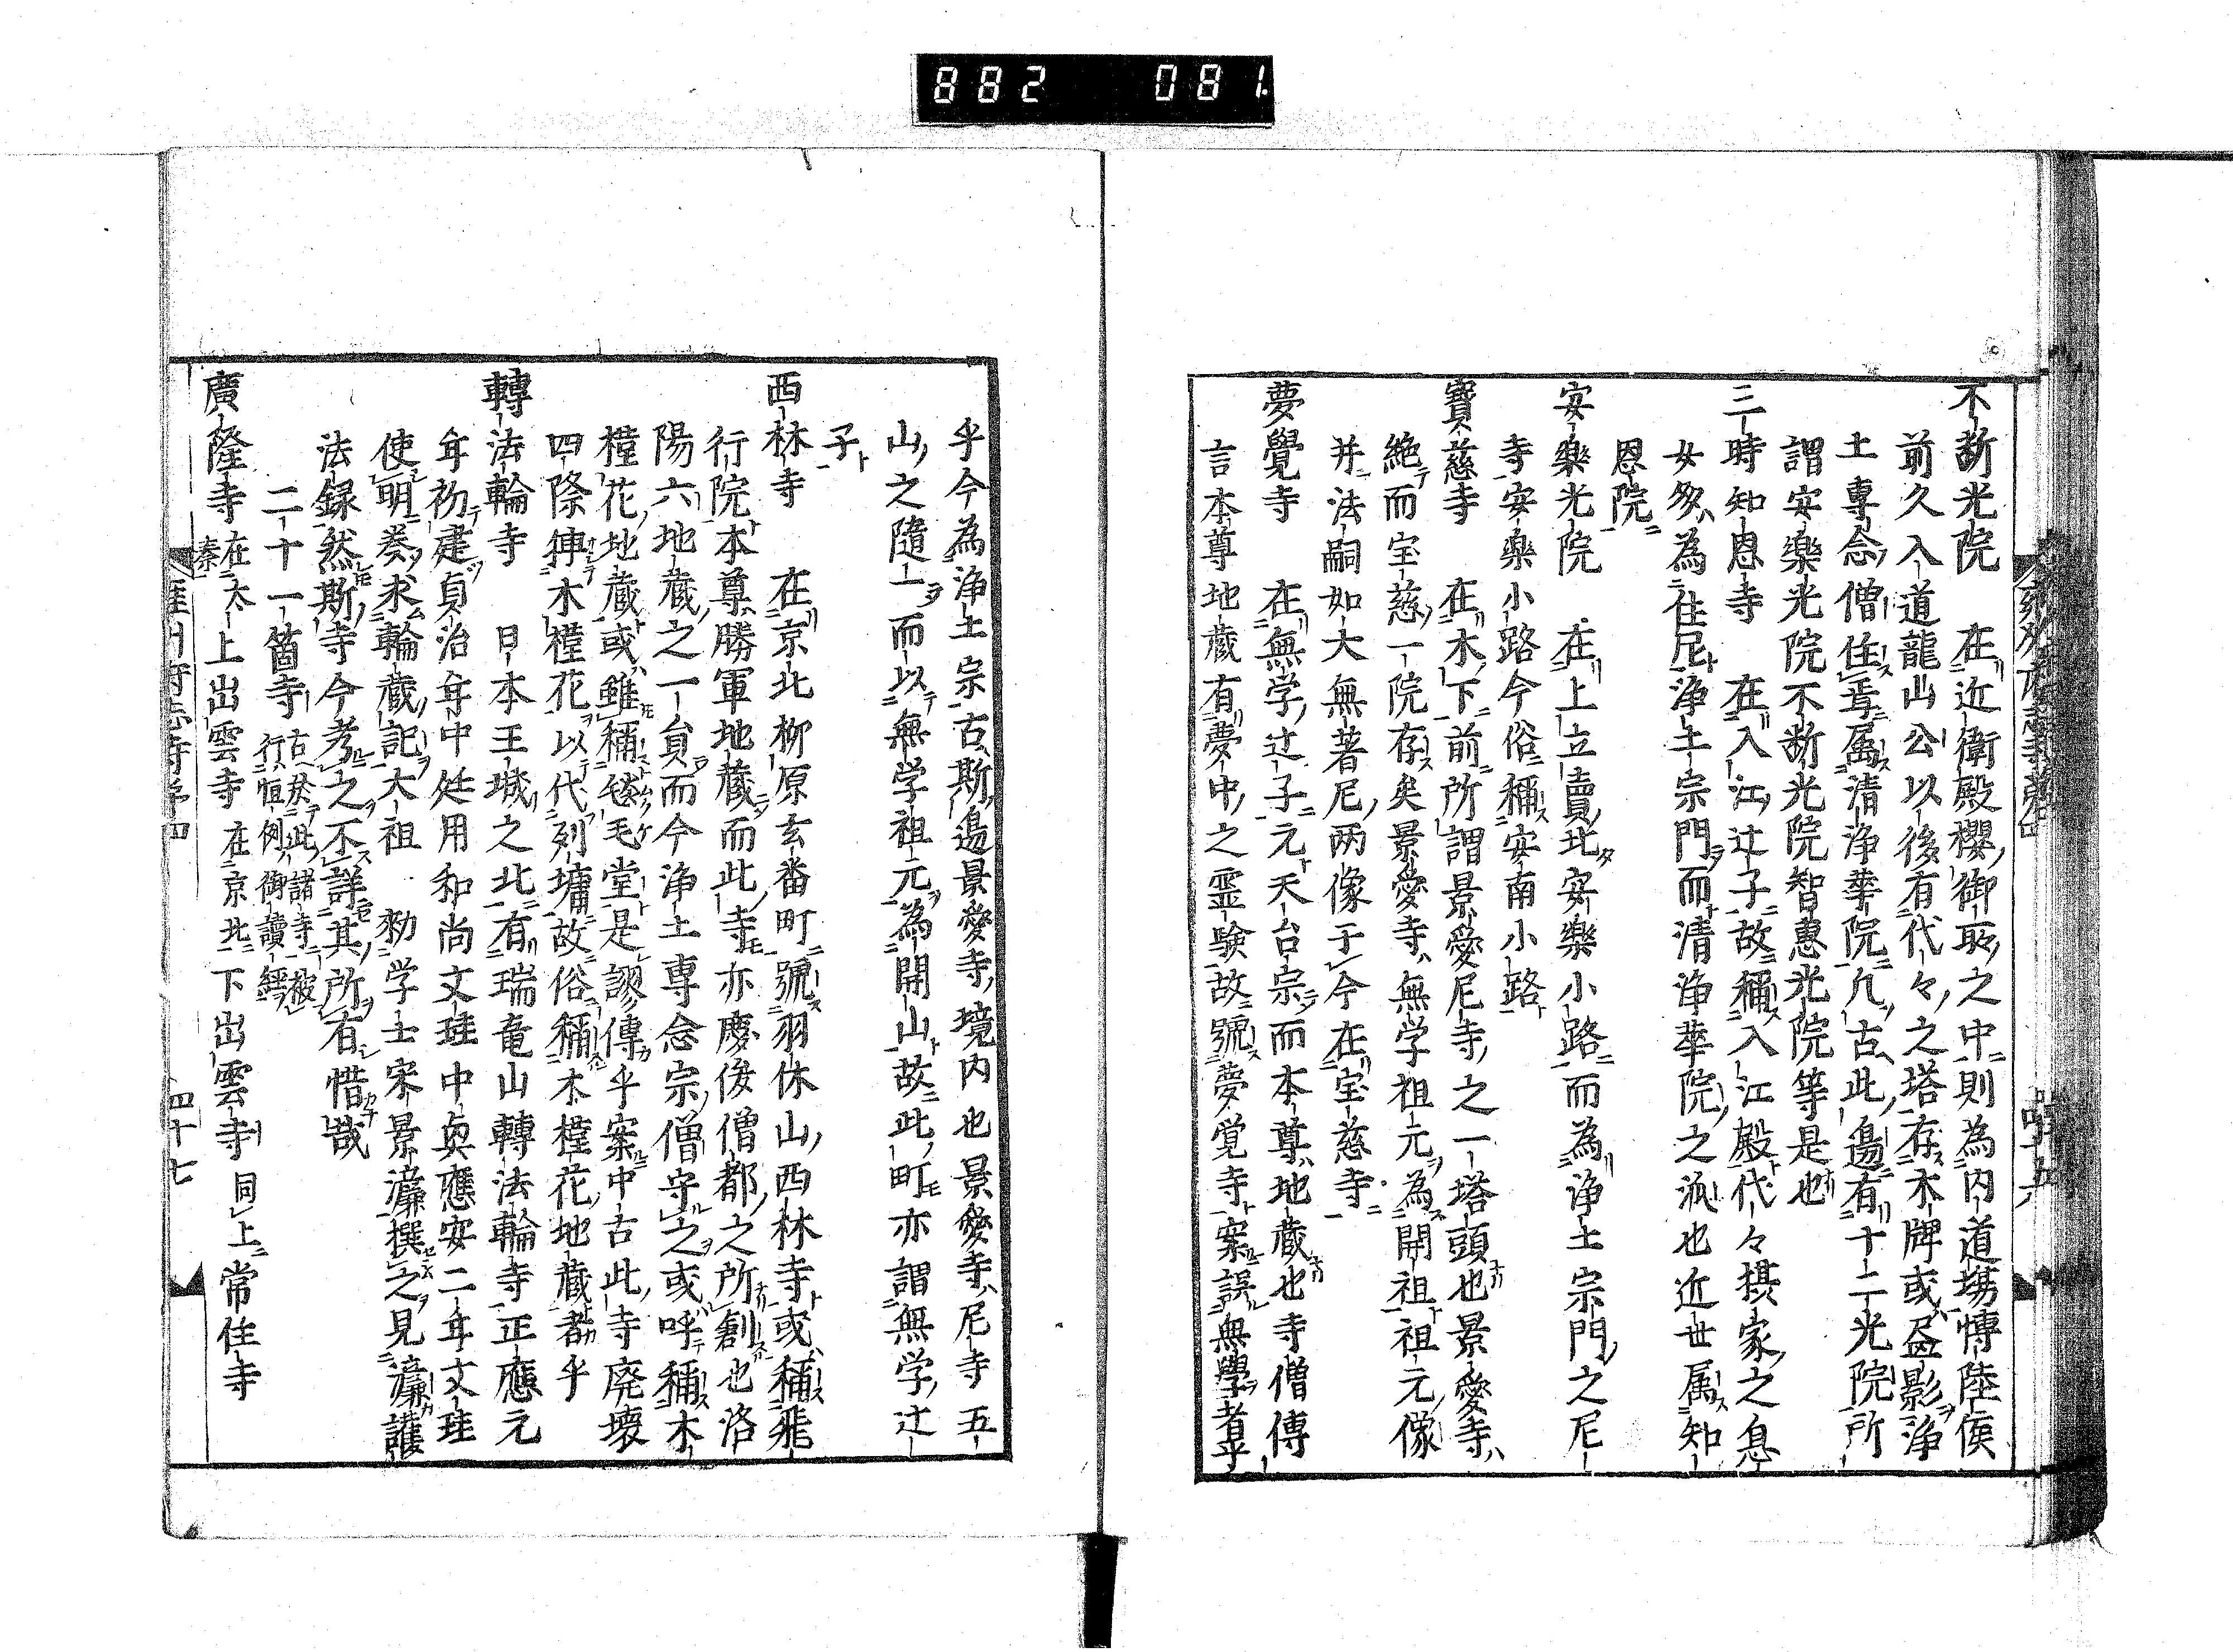 882 081
不断光院 在近衛殿櫻御所之中則為内道場博陸侯
前久入道龍山公以後有代々之塔存木牌或盃影浄
土専念僧住焉属清浄華院凢古此邊有十二光院所
謂安樂光院不断光院智惠光院等是也
三時知恩寺 在入江辻子故稱入江殿代々摂家之息
女多為住尼浄土宗門而清浄華院之派也近世属知
恩院
安樂光院 在上立賣北安樂小路而為浄土宗門之尼
寺安樂小路今俗稱安南小路
寶慈寺 在木下前所謂景愛尼寺之一塔頭也景愛寺
絶而宝慈一院存矣景愛寺無学祖元為開祖祖元像
并法嗣如大無著尼両像于今在宝慈寺
夢覺寺 在無学辻子元天台宗而本尊地蔵也寺僧傳
言本尊地蔵有夢中之霊験故號夢覚寺案誤無學者乎
乎今為浄土宗古斯邊景愛寺境内也景愛寺尼寺五
山之隨一而以無学祖元為開山故此町亦謂無学辻
子
西林寺 在京北柳原玄番町號羽休山西林寺或稱飛
行院本尊勝軍地蔵而此寺亦慶俊僧都之所創也洛
陽六地蔵之一員而今浄土専念宗僧守之或呼稱木
槿花地蔵或雖稱毬毛堂是謬傳乎案中古此寺廃壊
四際挿木槿花以代列墉故俗稱木槿花地蔵者乎
轉法輪寺 日本王城之北有瑞竜山轉法輪寺正應元
年初建貞治年中処用和尚文珪中奐應安二年文珪
使明奏求輪蔵記大祖 勅学士宋景濂撰之見濂護
法録然斯寺今考之不詳其所有惜哉
二十一箇寺 古於此諸寺被
行恒例御讀經
廣隆寺 在太
秦 上出雲寺 在京北 下出雲寺 同上 常住寺
雍州府志寺 四
四十七